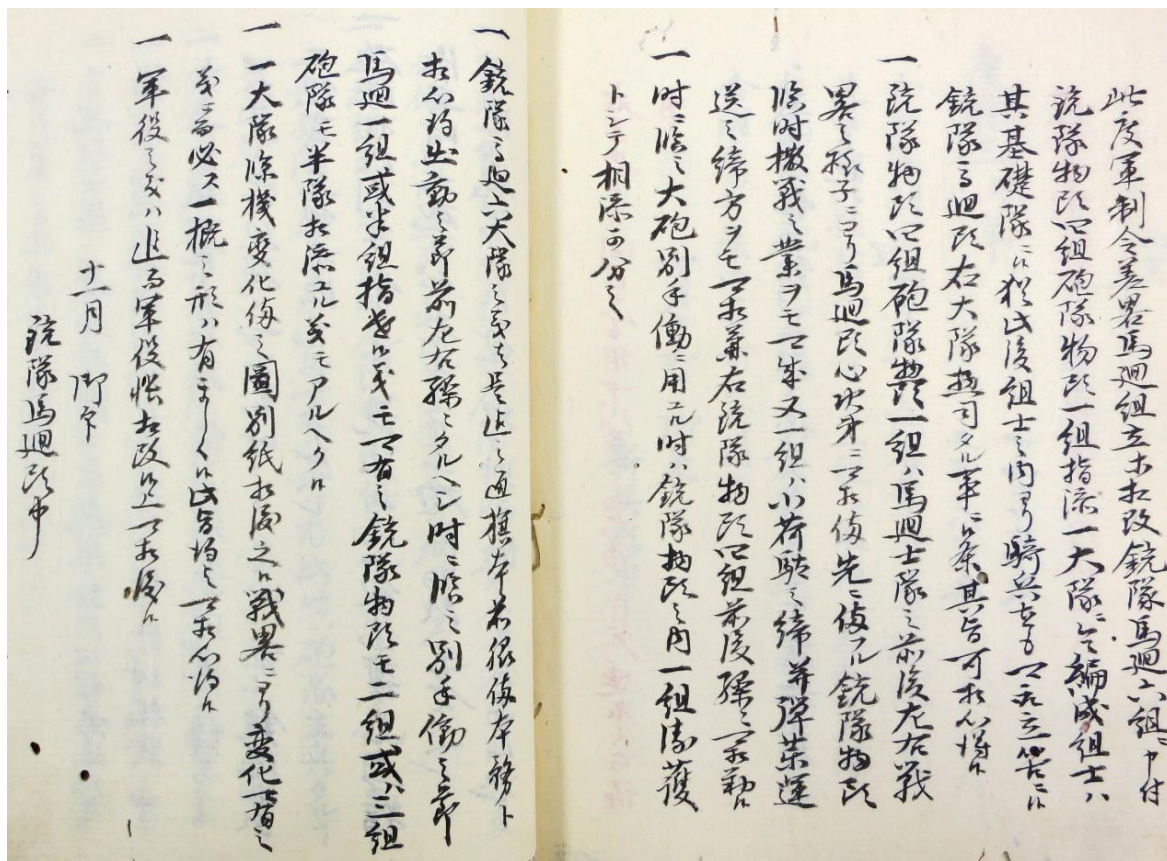 此度軍制令差略馬廻組立ホ相改銃隊馬廻六組ニ申付
銃隊物頭四組砲隊物頭一組指添一大隊ニ令編成組士ハ
其基礎隊ニ候此後組士之内ヨリ騎兵ヲモ可相立筈ニ候
銃隊馬廻頭右大隊指司タル事ニ候条其旨可相心得候
一 銃隊物頭四組砲隊物頭一組ハ馬廻士隊之前後左右戦
略之様子ニヨリ馬廻頭心次第ニ可相備先ニ備フル銃隊物頭
臨時撒戦之業ヲモ可成又一組ハ小荷駄之締并弾薬運
送之締方ヲモ可相兼右銃隊物頭四組前後操ニ可相勤候
一 時ニ臨ミ大砲別手働ニ用ル時ハ銃隊物頭之内一組援護
トシテ相添可分之
一 銃隊馬廻六大隊之義者是迄之通旗本前後備本務ト
相心得出動之節前左右操ミタルヘシ時ニ臨ミ別手働之節
馬廻一組或半組指遣候義モ可有之銃隊物頭モ二組或ハ三組
砲隊モ半隊相添ユル義モアルヘク候
一 一大隊臨機変化備之圖別紙相渡之候戦略ニヨリ変化
義ニ而必ス一概之形ハ有ましく候此旨得与可相心得候
一 軍役之義ハ追而軍役帳相改候上可相渡候
十一月 御下
銃隊馬廻頭中